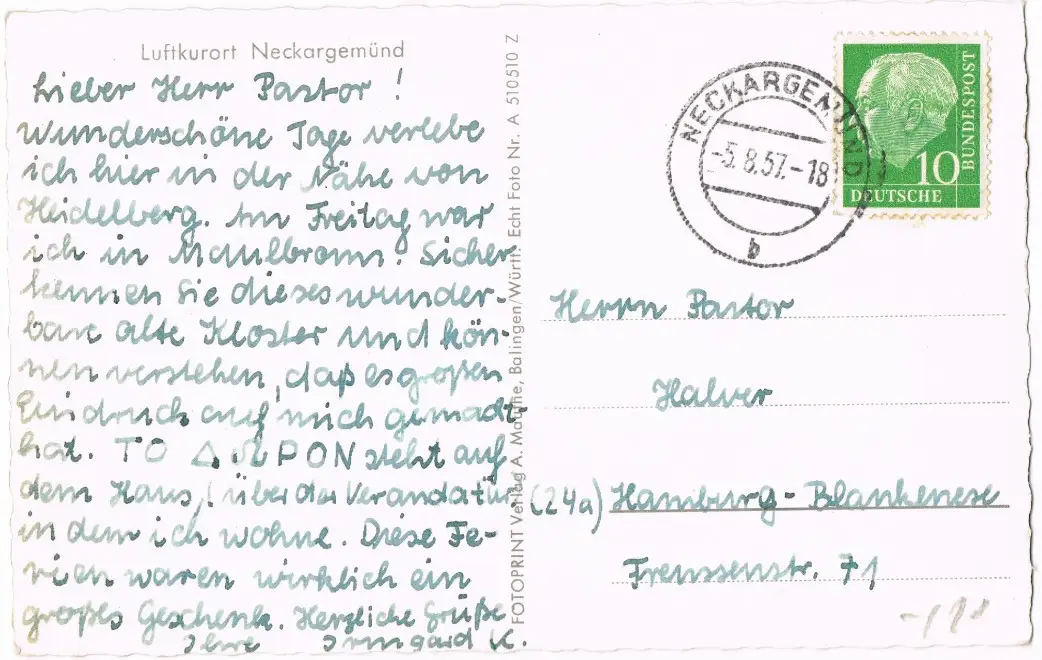 Luftkurort Neckargemünd
Lieber Herr Pastor!
Wunderschöne Tage verlebe
ich hier in der Nähe von
Heidelberg. Am Freitag war
ich in Maulbronn. Sicher
kennen Sie dieses wunder-
bare alte Kloster und kön-
nen verstehen, daß es großen
Eindruck auf mich gemacht
hat. ΤΟ ΔΩΡΟΝ steht auf
dem Haus, (über der Verandatür)
in dem ich wohne. Diese Fe-
rien waren wirklich ein
großes Geschenk. Herzliche Grüße
Ihre Irmgard K.
FOTOPRINT Verlag A. Mauthe, Balingen/Württ. Echt Foto Nr. A 510510 Z
NECKARGEMÜND
-5.8.57.-18
b
10
DEUTSCHE
BUNDESPOST
Herrn Pastor
Halver
(24a) Hamburg-Blankenese
Frenssenstr. 71